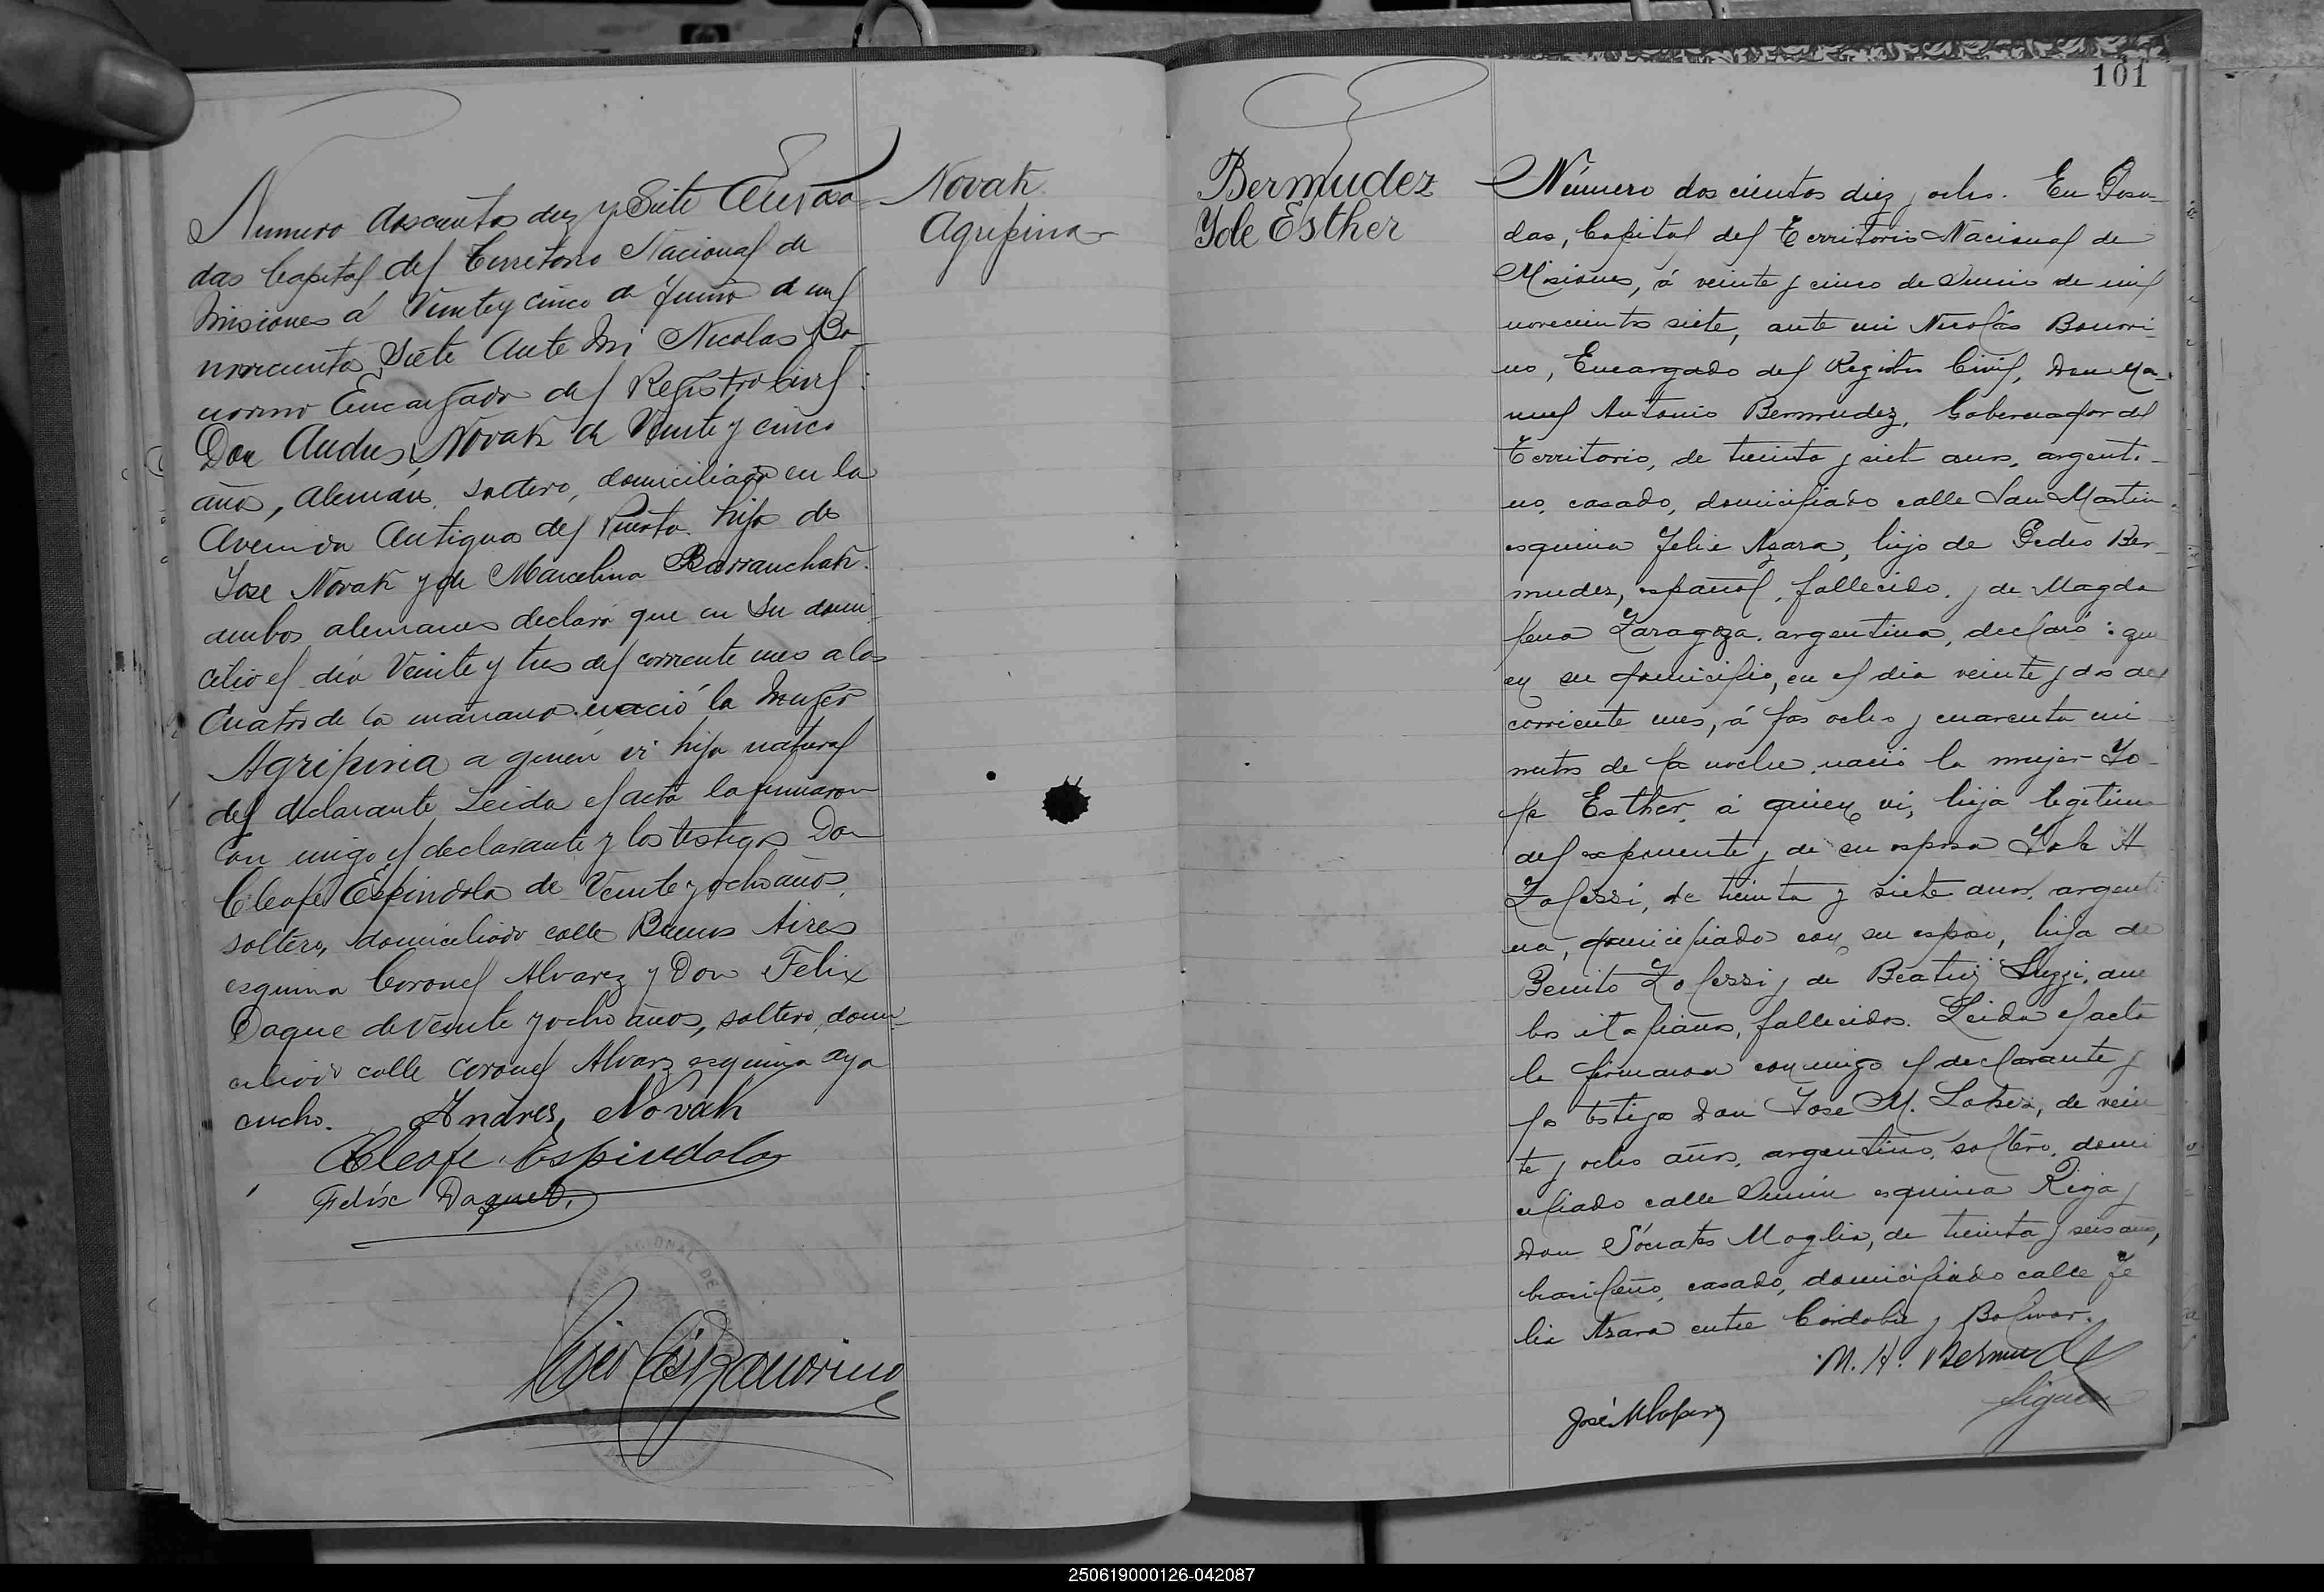 Numero doscientos diez y Siete En Posa-
das Capital del Territorio Nacional de
Misiones á Veinte y cinco de Junio de mil
novecientos Siete Ante Mi Nicolas Bo-
norino Encargado del Registro Civil:
Don Andres Novak de Veinte y cinco
años, aleman, soltero, domiciliado en la
Avenida Antigua del Puerto. hijo de
Jose Novak y de Marcelina Barranchak.
ambos alemanes declaró que en Su domi-
cilio el día Veinte y tres del corriente mes a las
Cuatro de la mañana nació la Mujer
Agripina a quien vi hija natural
del declarante Leida el acta la firmaron
Con migo el declarante y los testigos Don
Cleofe Espindola de Veinte y ocho años,
soltero, domiciliado calle Buenos Aires
esquina Coronel Alvarez y Don Felix
Daque de veinte y ocho años, soltero, domi-
ciliado calle Coronel Alvarz esquina aya
cucho. Andres Novak
Cleofe Espindola
Felix Daquet.
Nicolás Bonorino
Novak
Agripina
101
Bermudez
Yole Esther
Número dos cientos diez y ocho. En Posa-
das, Capital del Territorio Nacional de
Misiones, á veinte y cinco de Junio de mil
novecientos siete, ante mi Nicolás Bonori-
no, Encargado del Registro Civil, Don Ma-
nuel Antonio Bermudez, Gobernador del
Territorio, de treinta y siete anos, argenti-
no, casado, domiciliado calle San Martin
esquina Felix Azara, hijo de Pedro Ber-
mudez, español, fallecido, y de Magda
lena Zaragoza, argentina, declaró: que
en su domicilio, en el dia veinte y dos del
corriente mes, á las ocho y cuarenta mi
nutos de la noche, nació la mujer Yo-
le Esther, á quien vi, hija legitima
del exponente y de su esposa Yole A
Zolezzi, de treinta y siete anos, argenti
na, domiciliada con su esposo, hija de
Benito Zolezzi y de Beatriz am
bos italianos, fallecidos. Leida el acta
la firmaron conmigo el declarante y
los testigos Don Jose M. Lopez, de vein
te y ocho años, argentino, soltero, domi
ciliado calle Junin esquina Rioja y
Don Sócrates Moglia, de treinta y seis años,
brasileño, casado, domiciliado calle Fe
lix Azara entre Córdoba y Bolivar.
M. A. Bermudez
José M Lopez
siguen
250619000126-042087